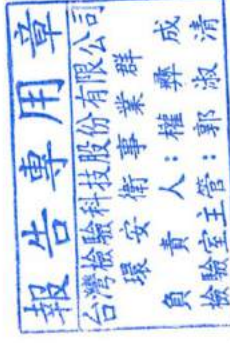 報告專用章
台灣檢驗科技股份有限公司
環安衛事業群
負責人：楊舜成
檢驗室主管：郭淑清